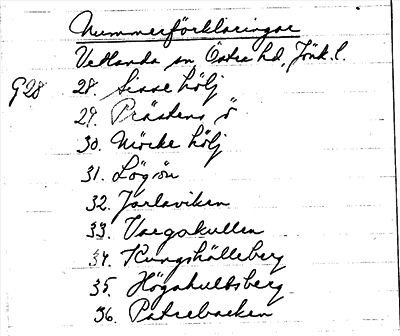 Nummerförklaringar
Vetlanda sn, Östra hd, Jönk. l.
G28 28. Sisse hölj
29. Prästens ö
30. Mörke hölj
31. Lögön
32. Jarlaviken
33. Vargskullen
34. Kungshälleberg
35. Högahultsberg
36. Patrebacken